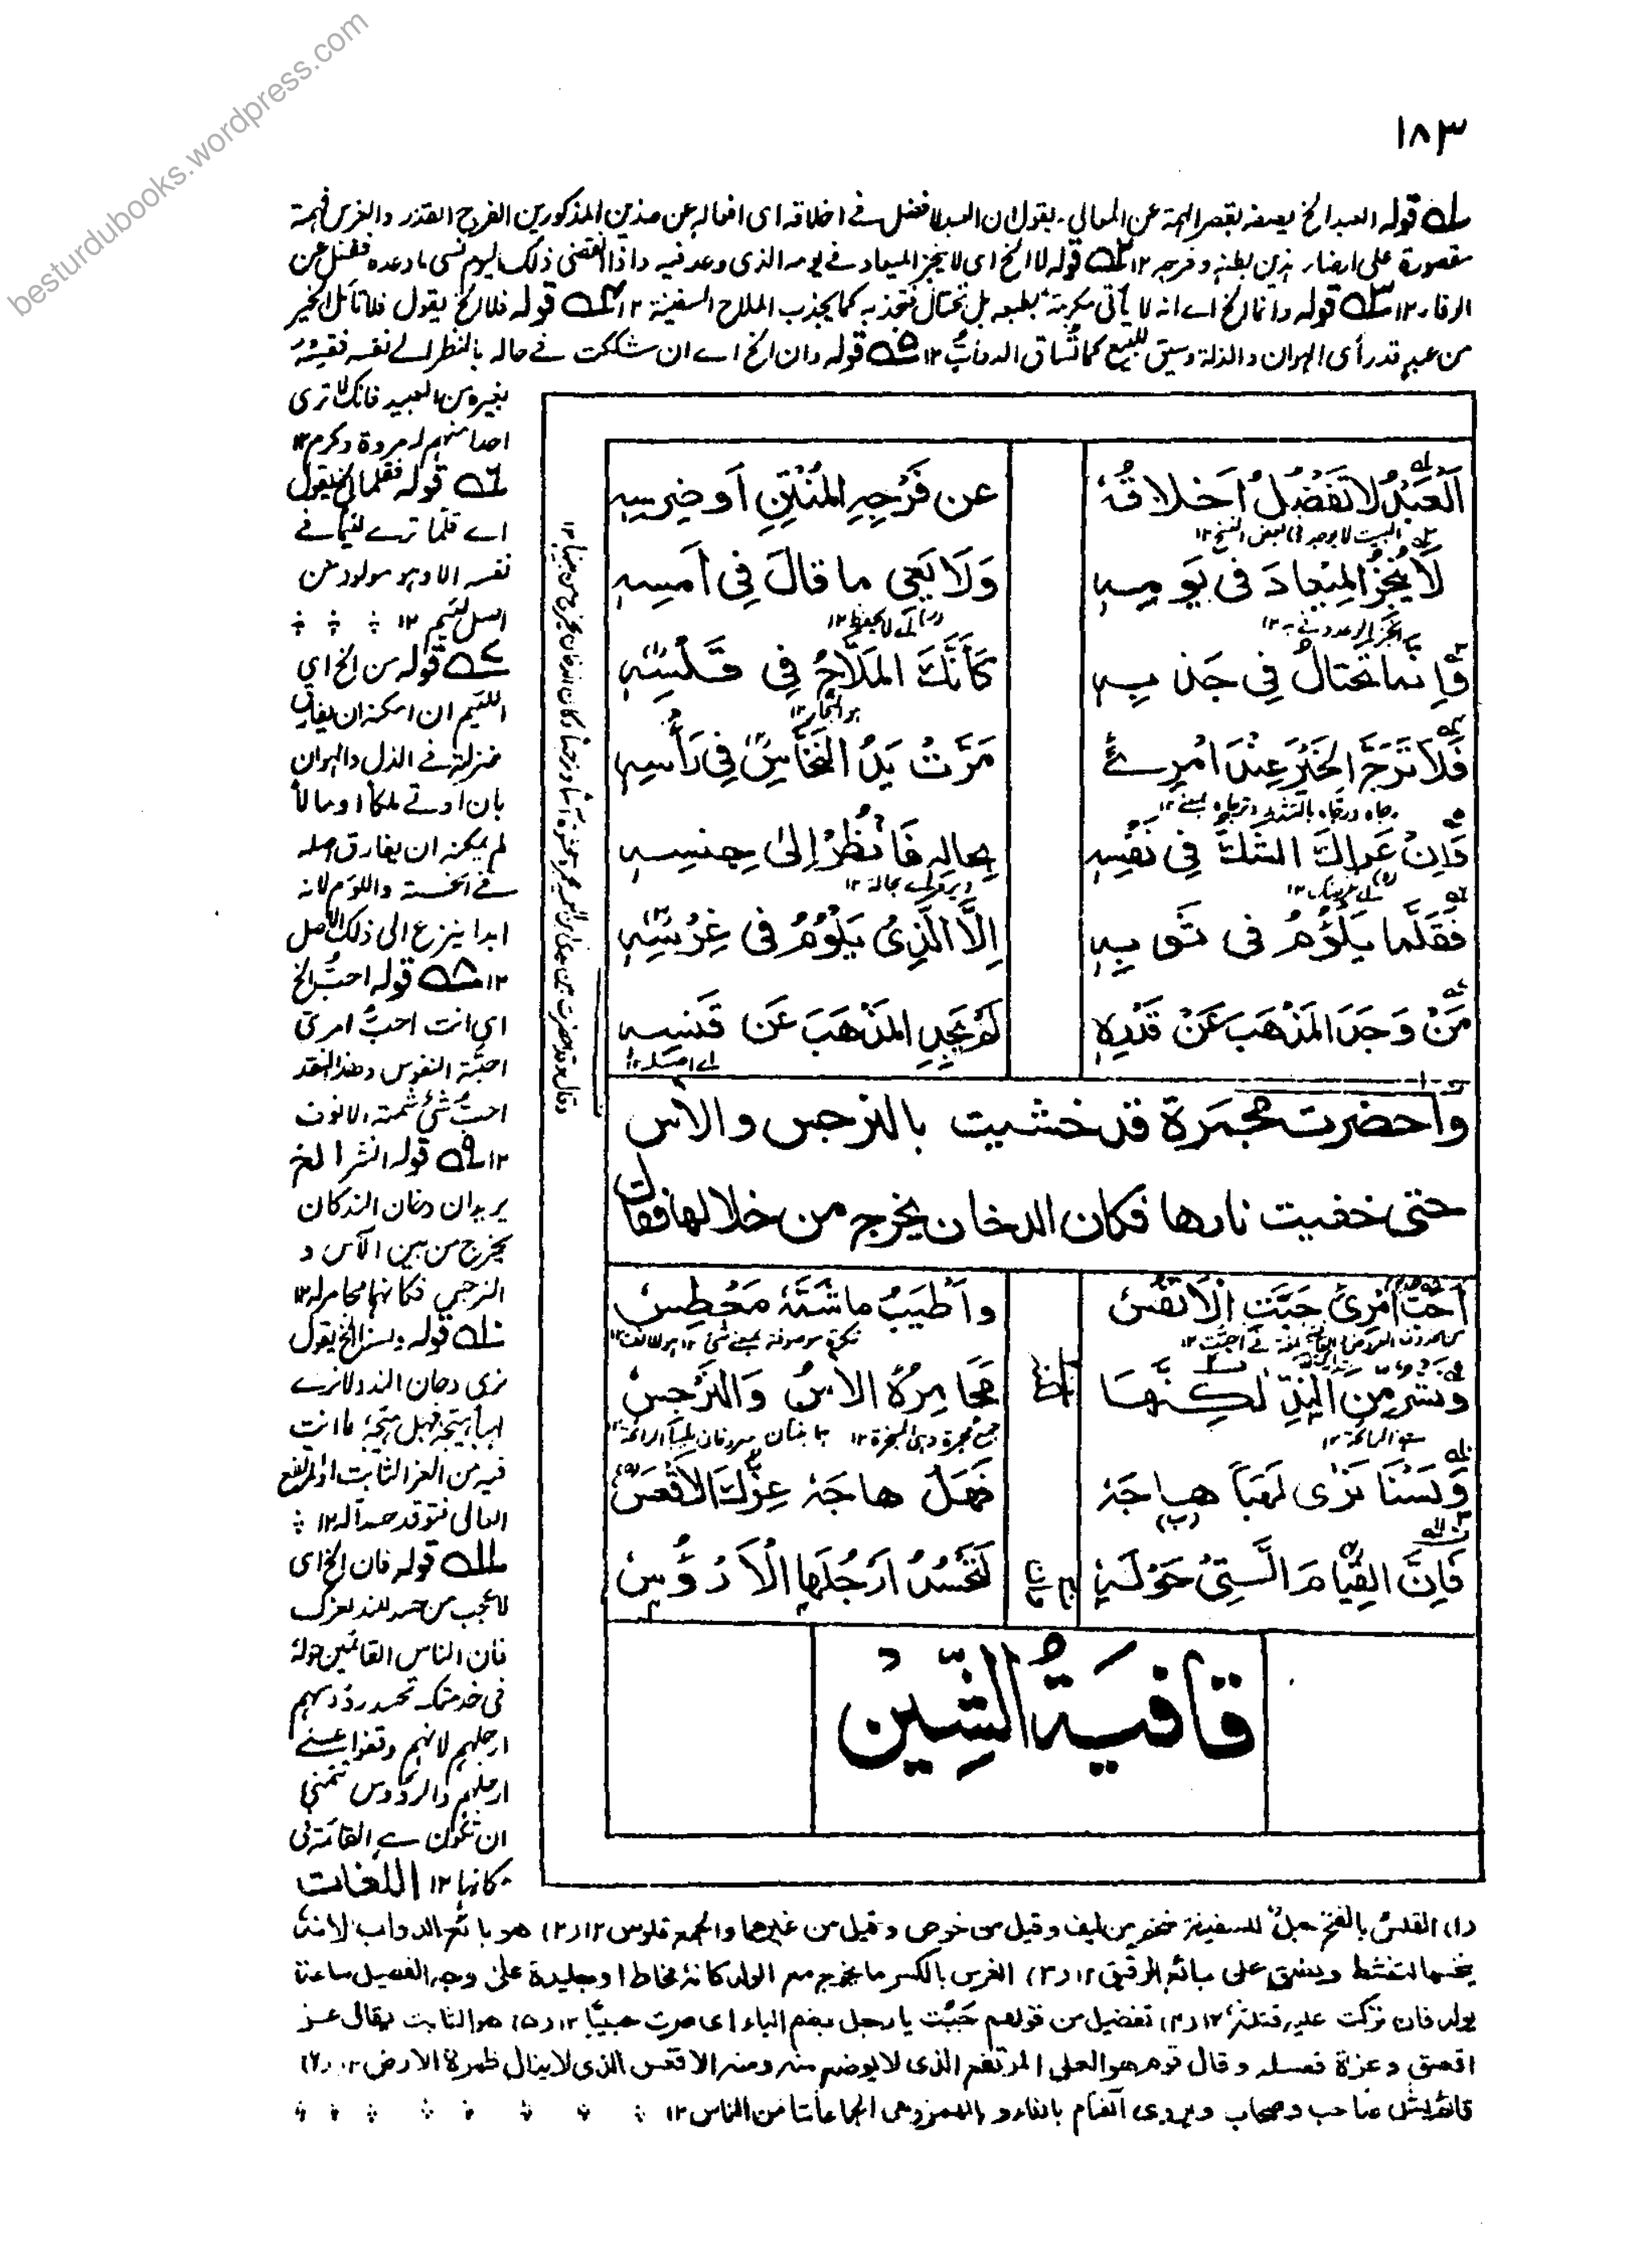 besturdubooks.wordpress.com
١٨٣
له قوله العبد الخ يصفه بقصر الهمة عن المعالي يقول ان العبد لا تفضل في اخلاقه اى افعاله عن هذين المذكورين الفرج القذر والضرس فهمته
مقصورة على ارضاء هذين بطنه وفرجه ١٢ قوله لا الخ اى لا ينجز الميعاد في يومه الذى وعد فيه واذا انقضى ذلك اليوم نسى ما وعده
١٢ قوله وانما الخ اے انه لا يأتى مكرمة بطبعه بل تحتال فتجذبه كما يجذب الملاح السفينة ١٢ قوله فلا الخ يقول فلا تأمل الخير
من عبد قد رأى الهوان والذلة وسيق للبيع كما تُساق الدوابُّ ١٢ قوله وان الخ اے ان شككت في حاله بالنظر الى نفسه فقسه
بغيره من العبيد فانك لا ترى
احدا منهم له مروة وكرم ١٢
قوله فقلما الخ يقول
اے قلّما ترے لئيما في
نفسه الا وهو مولود من
اصل لئيم ١٢
قوله من الخ اى
اللئيم ان امكنه ان يفارق
منزلته في الذل والهوان
بان اوتى ملكا او مالا
لم يمكنه ان يفارق اصله
في الخسة واللؤم لانه
ابدا ينزع الى ذلك الاصل
١٢ قوله احبُّ الخ
اى انت احبُّ امرئ
احبّته النفوس وهذا الند
احبُّ شئ شمته الانوف
١٢ قوله نشر الخ
يريد ان دخان الند كان
يخرج من بين الآس و
النرجس فكانها مجامر له ١٢
قوله ولسنا الخ يقول
نرى دخان الند ولا نرے
لهبا يهيجه فهل هيجه ما انت
فيه من العز الثابت او المرتفع
العالى فتوقد حسدا له ١٢
قوله فان الخ اى
لا عجب من حسد الند لعزك
فان الناس القائمين حوله
في خدمتك تحسد رؤوسهم
ارجلهم لانهم وقفوا على
ارجلهم والرؤوس تتمنى
ان تكون هے القائمة في
مكانها ١٢ اللغات
اَلْعَبْدُ لَا تَفْضُلُ اَخلاقُهٗ
عن فَرْجِهِ المُنْتِنِ اَو ضِرسِهٖ
البيت لا يوجد فى بعض النسخ ١٢
لَا يُنْجِزُ المِيْعادَ فى يَومِهٖ
وَلَا يَعِى ما قالَ فِى اَمسِهٖ
لا يحفظ ١٢
وَاِنَّما تَحتالُ فِى جَذبِهٖ
كَأَنَّكَ المَلَّاحُ فِى قَلْسِهٖ
فَلَا تَرَجَّ الخَيْرَ عِنْدَ امْرِئٍ
مَرَّتْ يَدُ النَّخَّاسِ فِى رَأْسِهٖ
وَاِنْ عَراكَ الشَّكُّ فِى نَفْسِهٖ
بِحالِهٖ فَانْظُرْ اِلىٰ جِنسِهٖ
فَقَلَّما يَلْؤُمُ فى ثَوبِهٖ
اِلَّا الَّذِىْ يَلْؤُمُ فى غِرْسِهٖ
مَنْ وَجَدَ المَذْهَبَ عَنْ قَدْرِهٖ
لَمْ يَجِدِ المَذْهَبَ عَن قَنسِهٖ
اے اصله ١٢
واحضرت مجمرة قد حشيت بالنرجس والاٰس
حتى خفيت نارها فكان الدخان يخرج من خلالها فقال
اَحَبُّ امْرِئٍ حَبَّتِ الْاَنْفُسُ
واَطْيَبُ ما شَمَّهٗ مَعْطِسٗ
وَنَشْرٌ مِنَ النِّدِّ لٰكِنَّهَا
مَجَامِرُهُ الاٰسُ وَالنَّرْجِسٗ
وَلَسْنَا نَرٰى لَهَباً هاجَهٗ
فَهَلْ هاجَهٗ عِزُّكَ الاَقْعَسٗ
فَاِنَّ القِيامَ الَّتِىْ حَوْلَهٗ
لَتَحْسُدُ اَرْجُلَهَا الْاَرْؤُسٗ
قافيةُ الشِّيْن
(١) القلسُ بالفتح حبلٌ للسفينة ضخم من ليف وقيل من خوص وقيل من غيرهما والجمع قلوس ١٢ (٢) هو بائع الدواب لانه
ينخسها لتنشط ويطلق على بائع الرقيق ١٢ (٣) الغرس بالكسر ما يخرج مع الولد كانهٗ مخاط او جليدة على وجه الفصيل ساعة
يولد فان تركت عليه قتلته ١٢ (٤) تفضيل من قولهم حَبُبْت يا رجل بضم الباء اى صرت حبيبًا ١٢ (٥) هو الثابت يقال عز
اقعس وعزة قعساء وقال قوم هو العالى المرتفع الذى لا يوضع منه ومنه الاقعس الذى لا ينال ظهرهٗ الارض ١٢ (٦)
صاحب وصحاب ويروى الفئام بالفاء والهمز وهى الجماعات من الناس ١٢